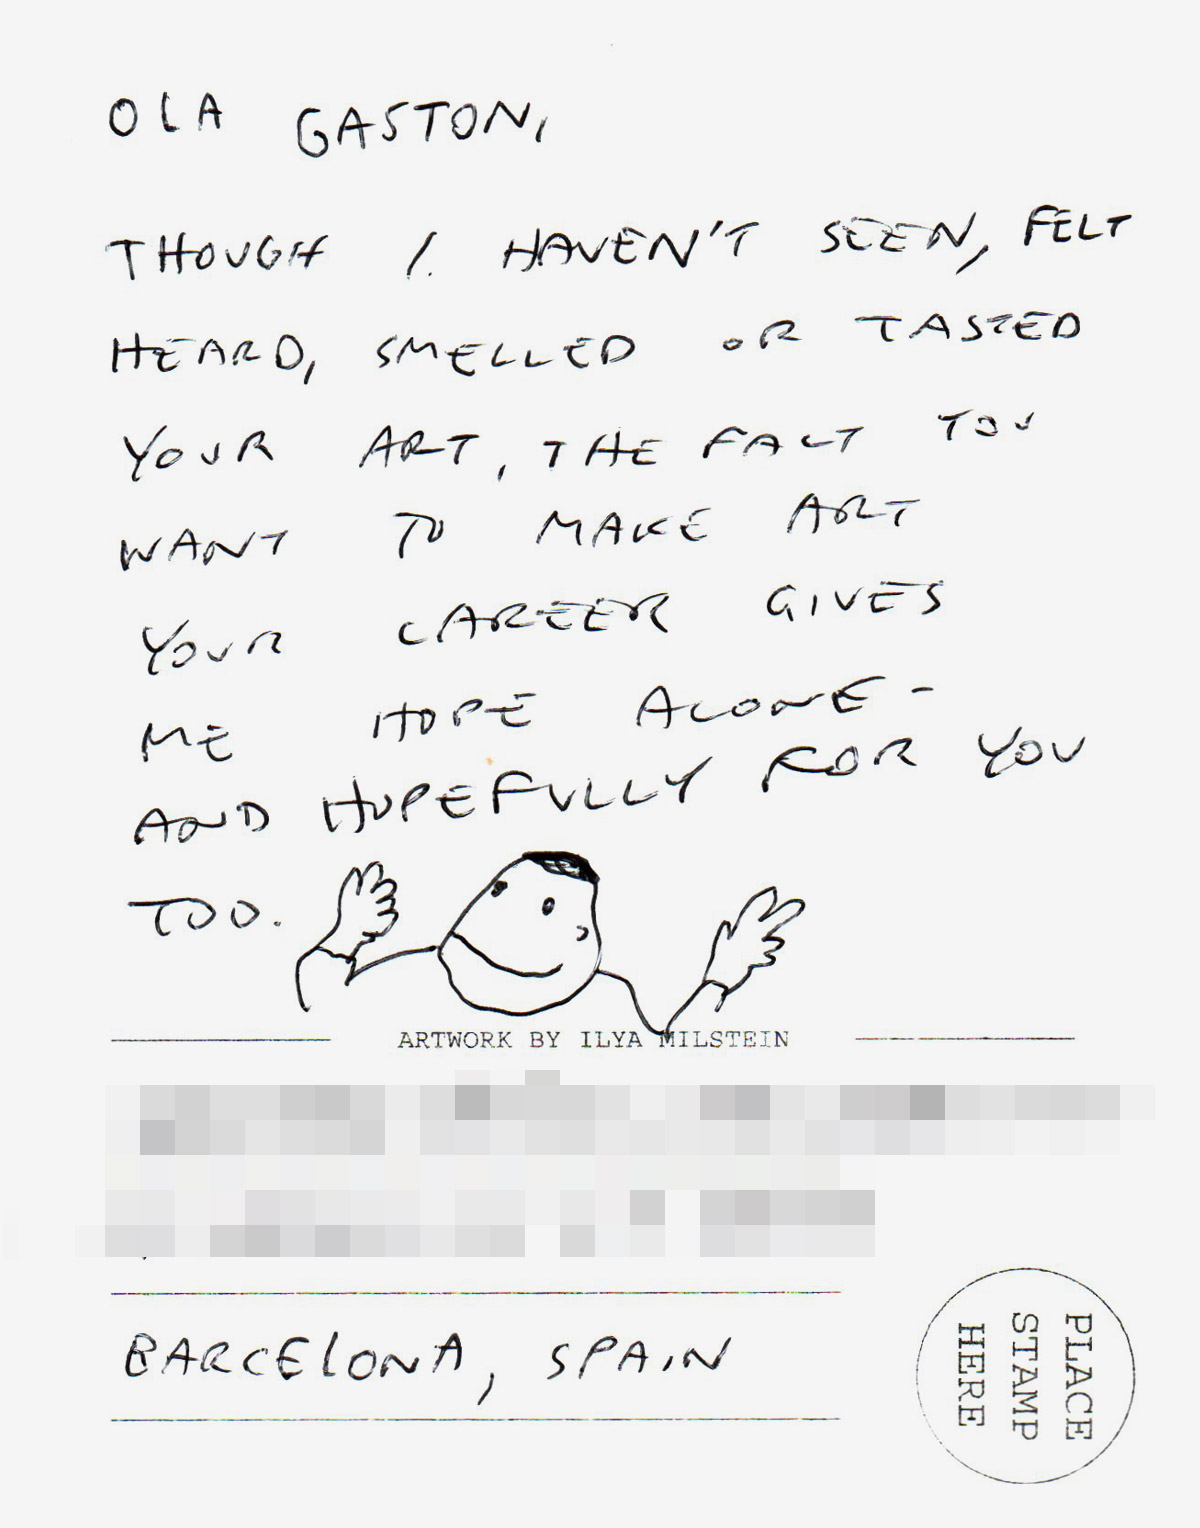 OLA GASTON,
THOUGH I HAVEN'T SEEN, FELT
HEARD, SMELLED OR TASTED
YOUR ART, THE FACT YOU
WANT TO MAKE ART
YOUR CAREER GIVES
ME HOPE ALONE -
AND HOPEFULLY FOR YOU
TOO.
ARTWORK BY ILYA MILSTEIN
BARCELONA, SPAIN
PLACE
STAMP
HERE